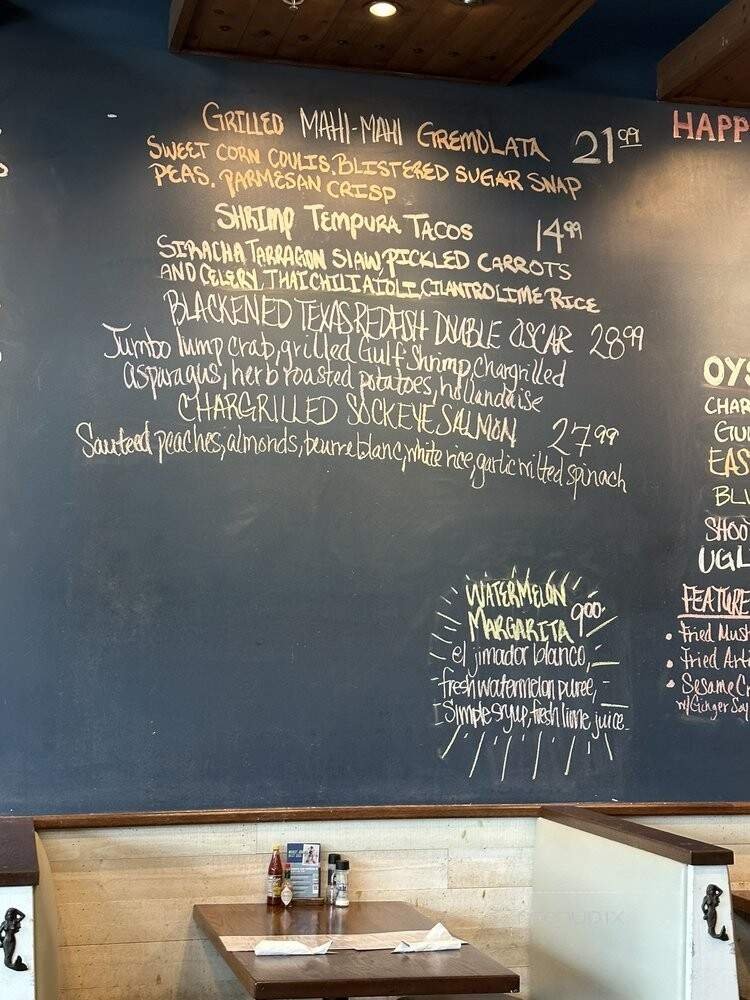 GRILLED MAHI-MAHI GREMOLATA 21.99
SWEET CORN COULIS, BLISTERED SUGAR SNAP
PEAS, PARMESAN CRISP
SHRIMP TEMPURA TACOS 14.99
SIRACHA TARRAGON SLAW, PICKLED CARROTS
AND CELERY, THAI CHILI AIOLI, CILANTRO LIME RICE
BLACKENED TEXAS REDFISH DOUBLE OSCAR 28.99
Jumbo lump crab, grilled Gulf Shrimp, chargrilled
asparagus, herb roasted potatoes, hollandaise
CHARGRILLED SOCKEYE SALMON 27.99
Sauteed peaches, almonds, beurre blanc, white rice, garlic wilted spinach
WATERMELON
MARGARITA 9.00
el jimador blanco,
fresh watermelon puree,
Simple syup, fresh lime juice
HAPP
OYS
CHAR
GU
EAS
BLU
SHOO
UGL
FEATURE
• Fried Must
• Fried Arti
• Sesame Cr
w/Ginger Soy